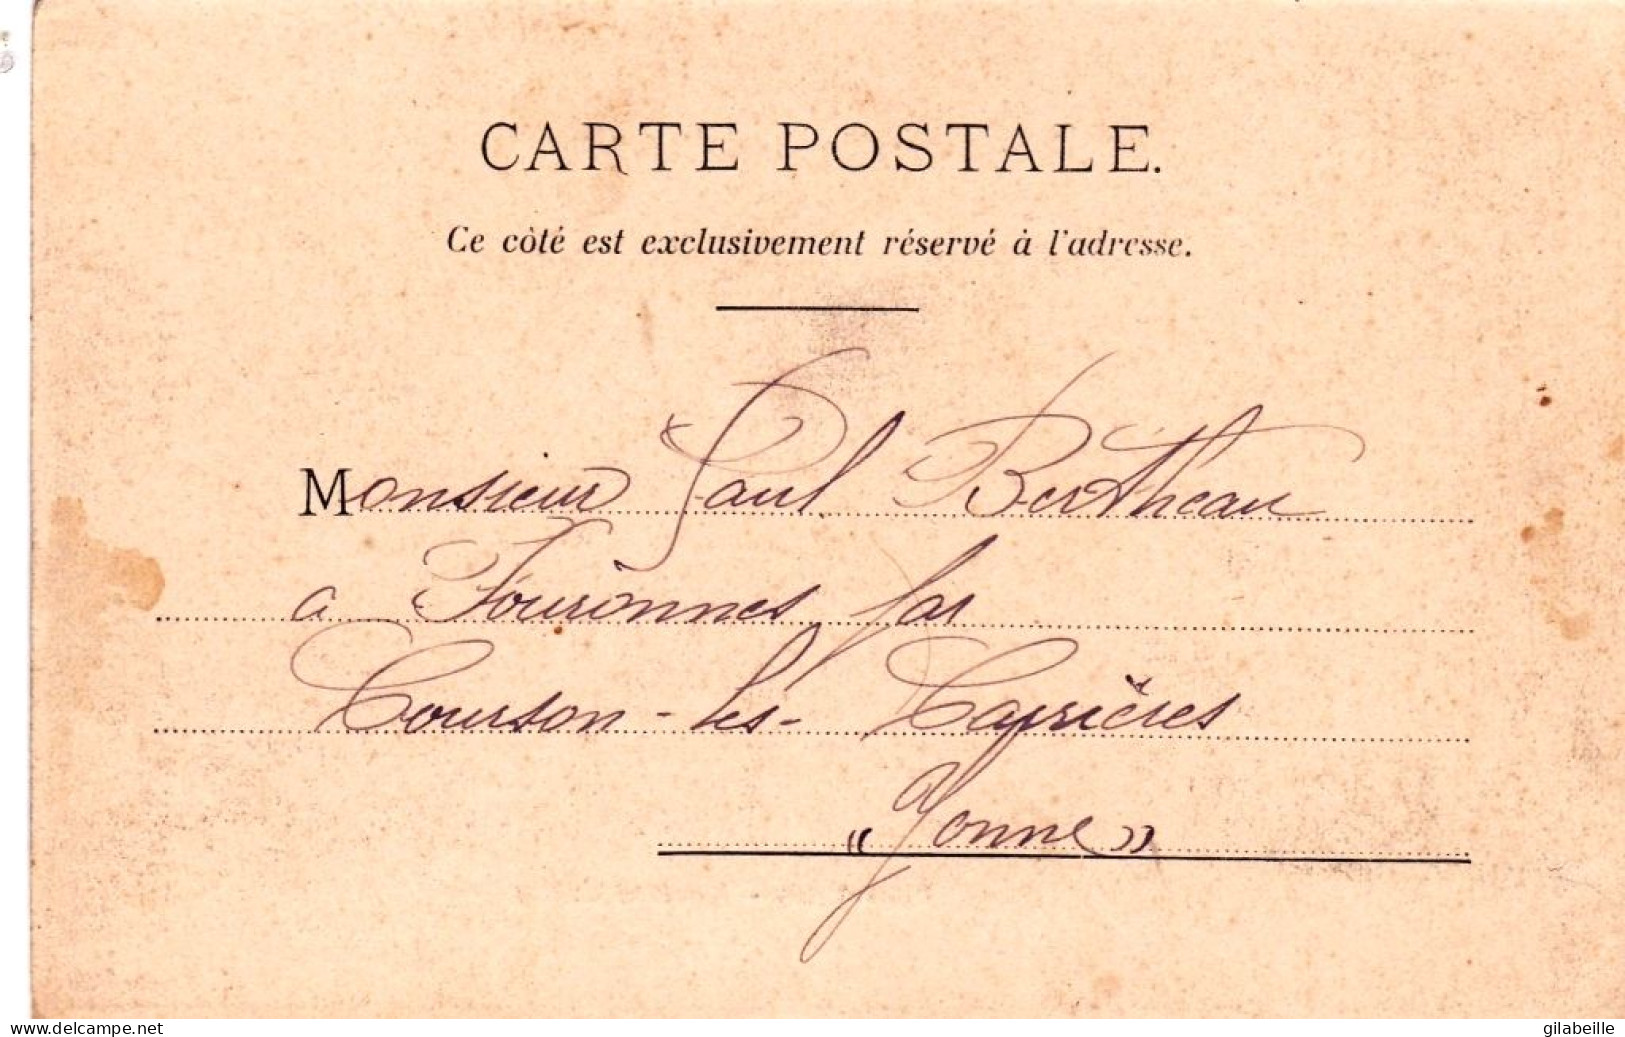 CARTE POSTALE.
Ce côté est exclusivement réservé à l'adresse.
Monsieur Paul Bertheau
a Fouronnes par
Courson-lès-Carrières
«Yonne»
www.delcampe.net
gilabeille